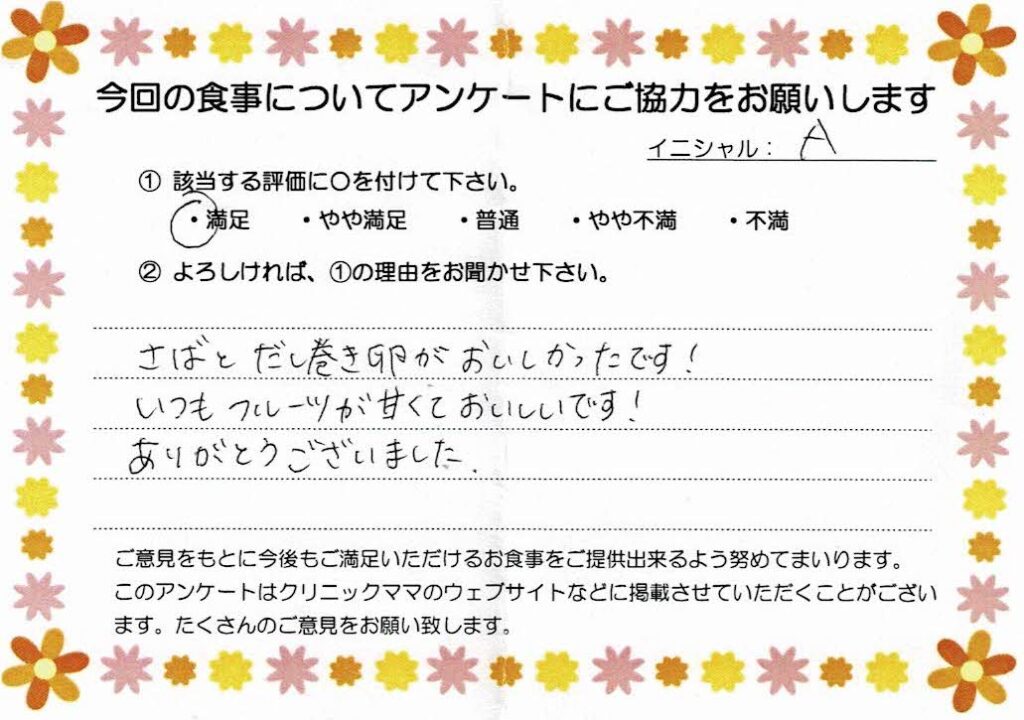 今回の食事についてアンケートにご協力をお願いします
イニシャル： A
① 該当する評価に〇を付けて下さい。
・満足 ・やや満足 ・普通 ・やや不満 ・不満
② よろしければ、①の理由をお聞かせ下さい。
さばと だし巻き卵が おいしかったです！
いつも フルーツが甘くて おいしいです！
ありがとうございました.
ご意見をもとに今後もご満足いただけるお食事をご提供出来るよう努めてまいります。
このアンケートはクリニックママのウェブサイトなどに掲載させていただくことがござい
ます。たくさんのご意見をお願い致します。